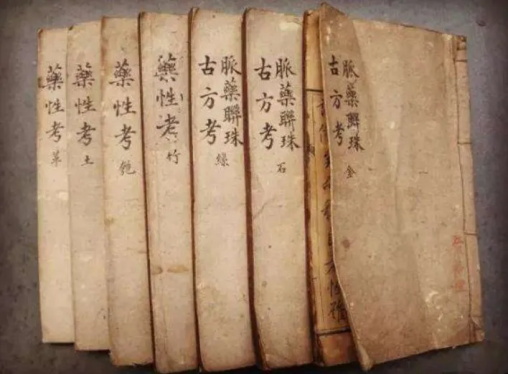 脈藥聯珠
古方考
金
脈藥聯珠
古方考
石
脈藥聯珠
古方考
絲
藥性考
竹
藥性考
匏
藥性考
土
藥性考
革